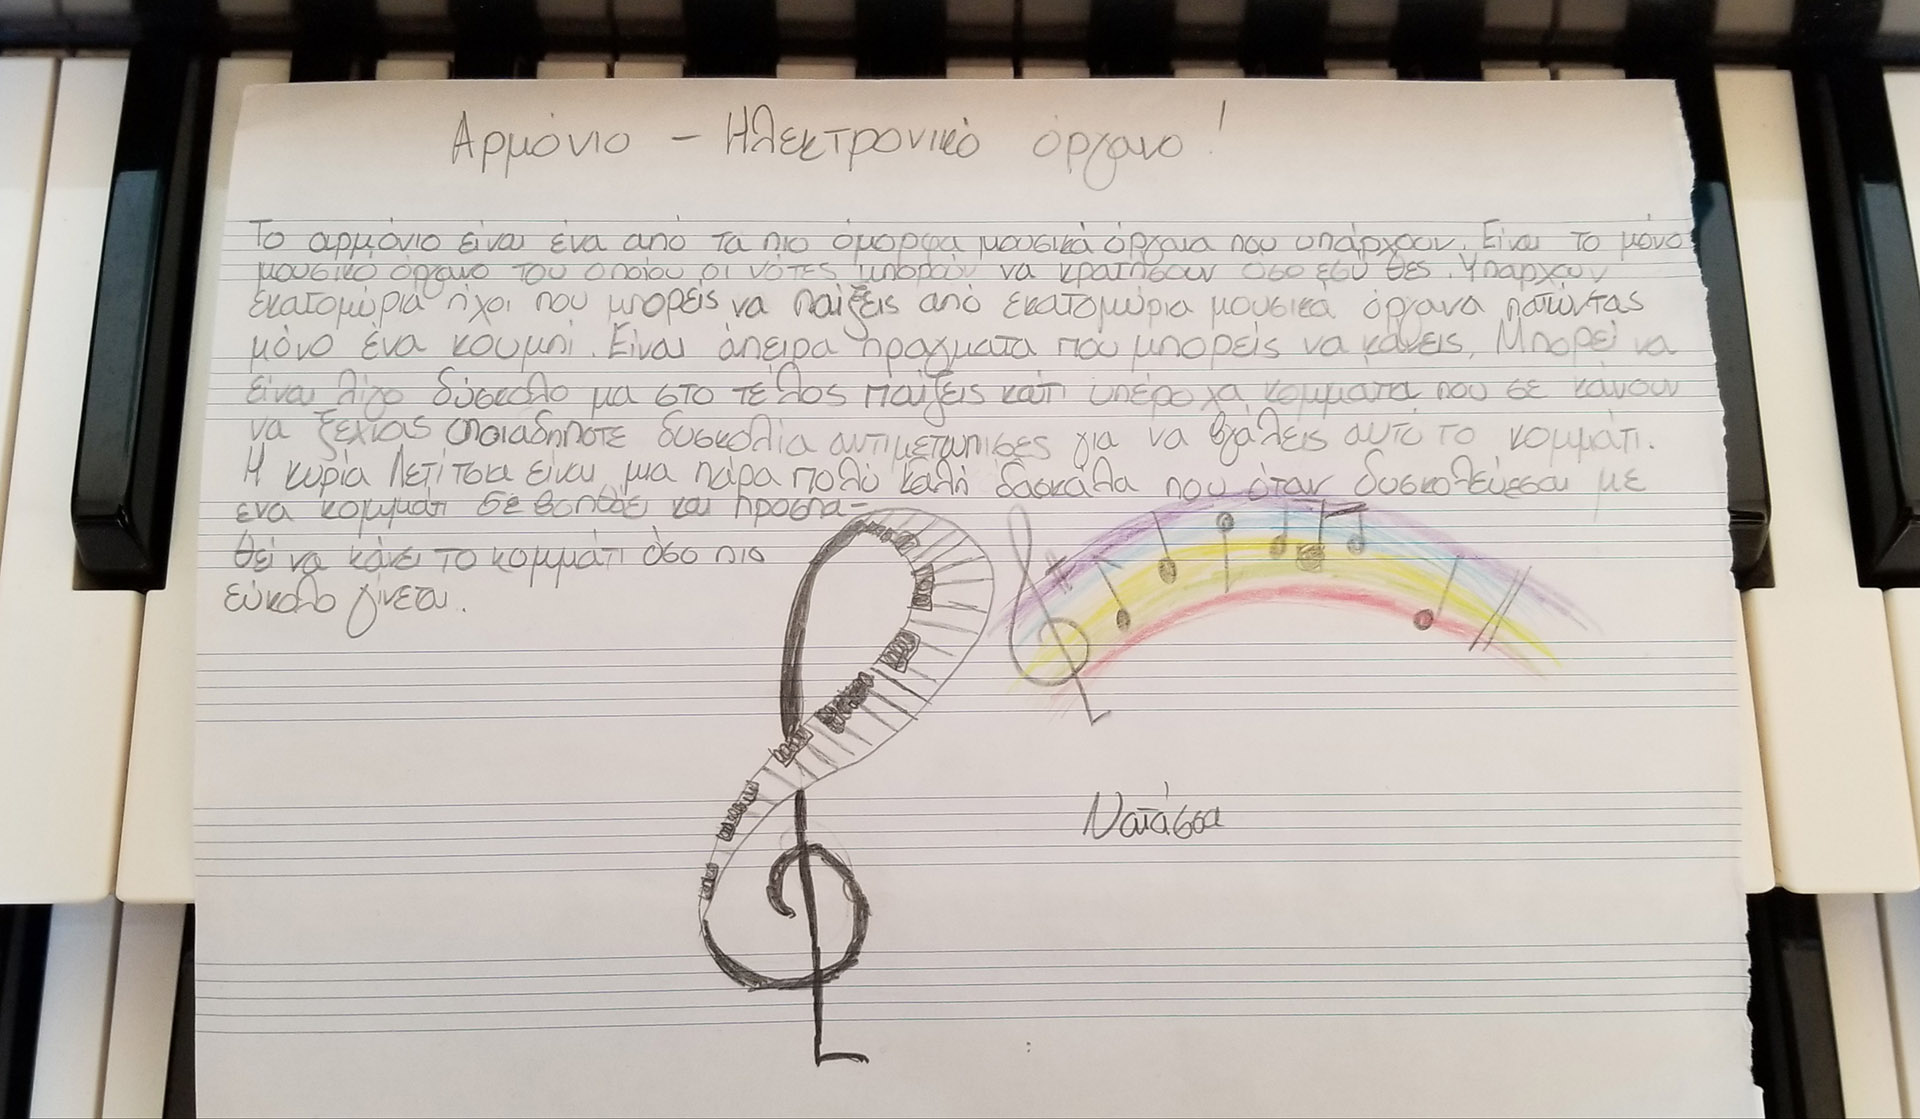 Αρμόνιο - Ηλεκτρονικό όργανο!
Το αρμόνιο είναι ένα από τα πιο όμορφα μουσικά όργανα που υπάρχουν. Είναι το μόνο
μουσικό όργανο του οποίου οι νότες μπορούν να κρατήσουν όσο εσύ θες. Υπάρχουν
εκατομύρια ήχοι που μπορείς να παίξεις από εκατομύρια μουσικά όργανα πατώντας
μόνο ένα κουμπί. Είναι άπειρα πράγματα που μπορείς να κάνεις. Μπορεί να
είναι λίγο δύσκολο μα στο τέλος παίζεις κάτι υπέροχα κομμάτια που σε κάνουν
να ξεχνάς οποιαδήποτε δυσκολία αντιμετώπισες για να βγάλεις αυτό το κομμάτι.
Η κυρία Λετίτσια είναι μια πάρα πολύ καλή δασκάλα που όταν δυσκολεύεσαι με
ένα κομμάτι σε βοηθάει και προσπα-
θεί να κάνει το κομμάτι όσο πιο
εύκολο γίνεται.
Νατάσσα